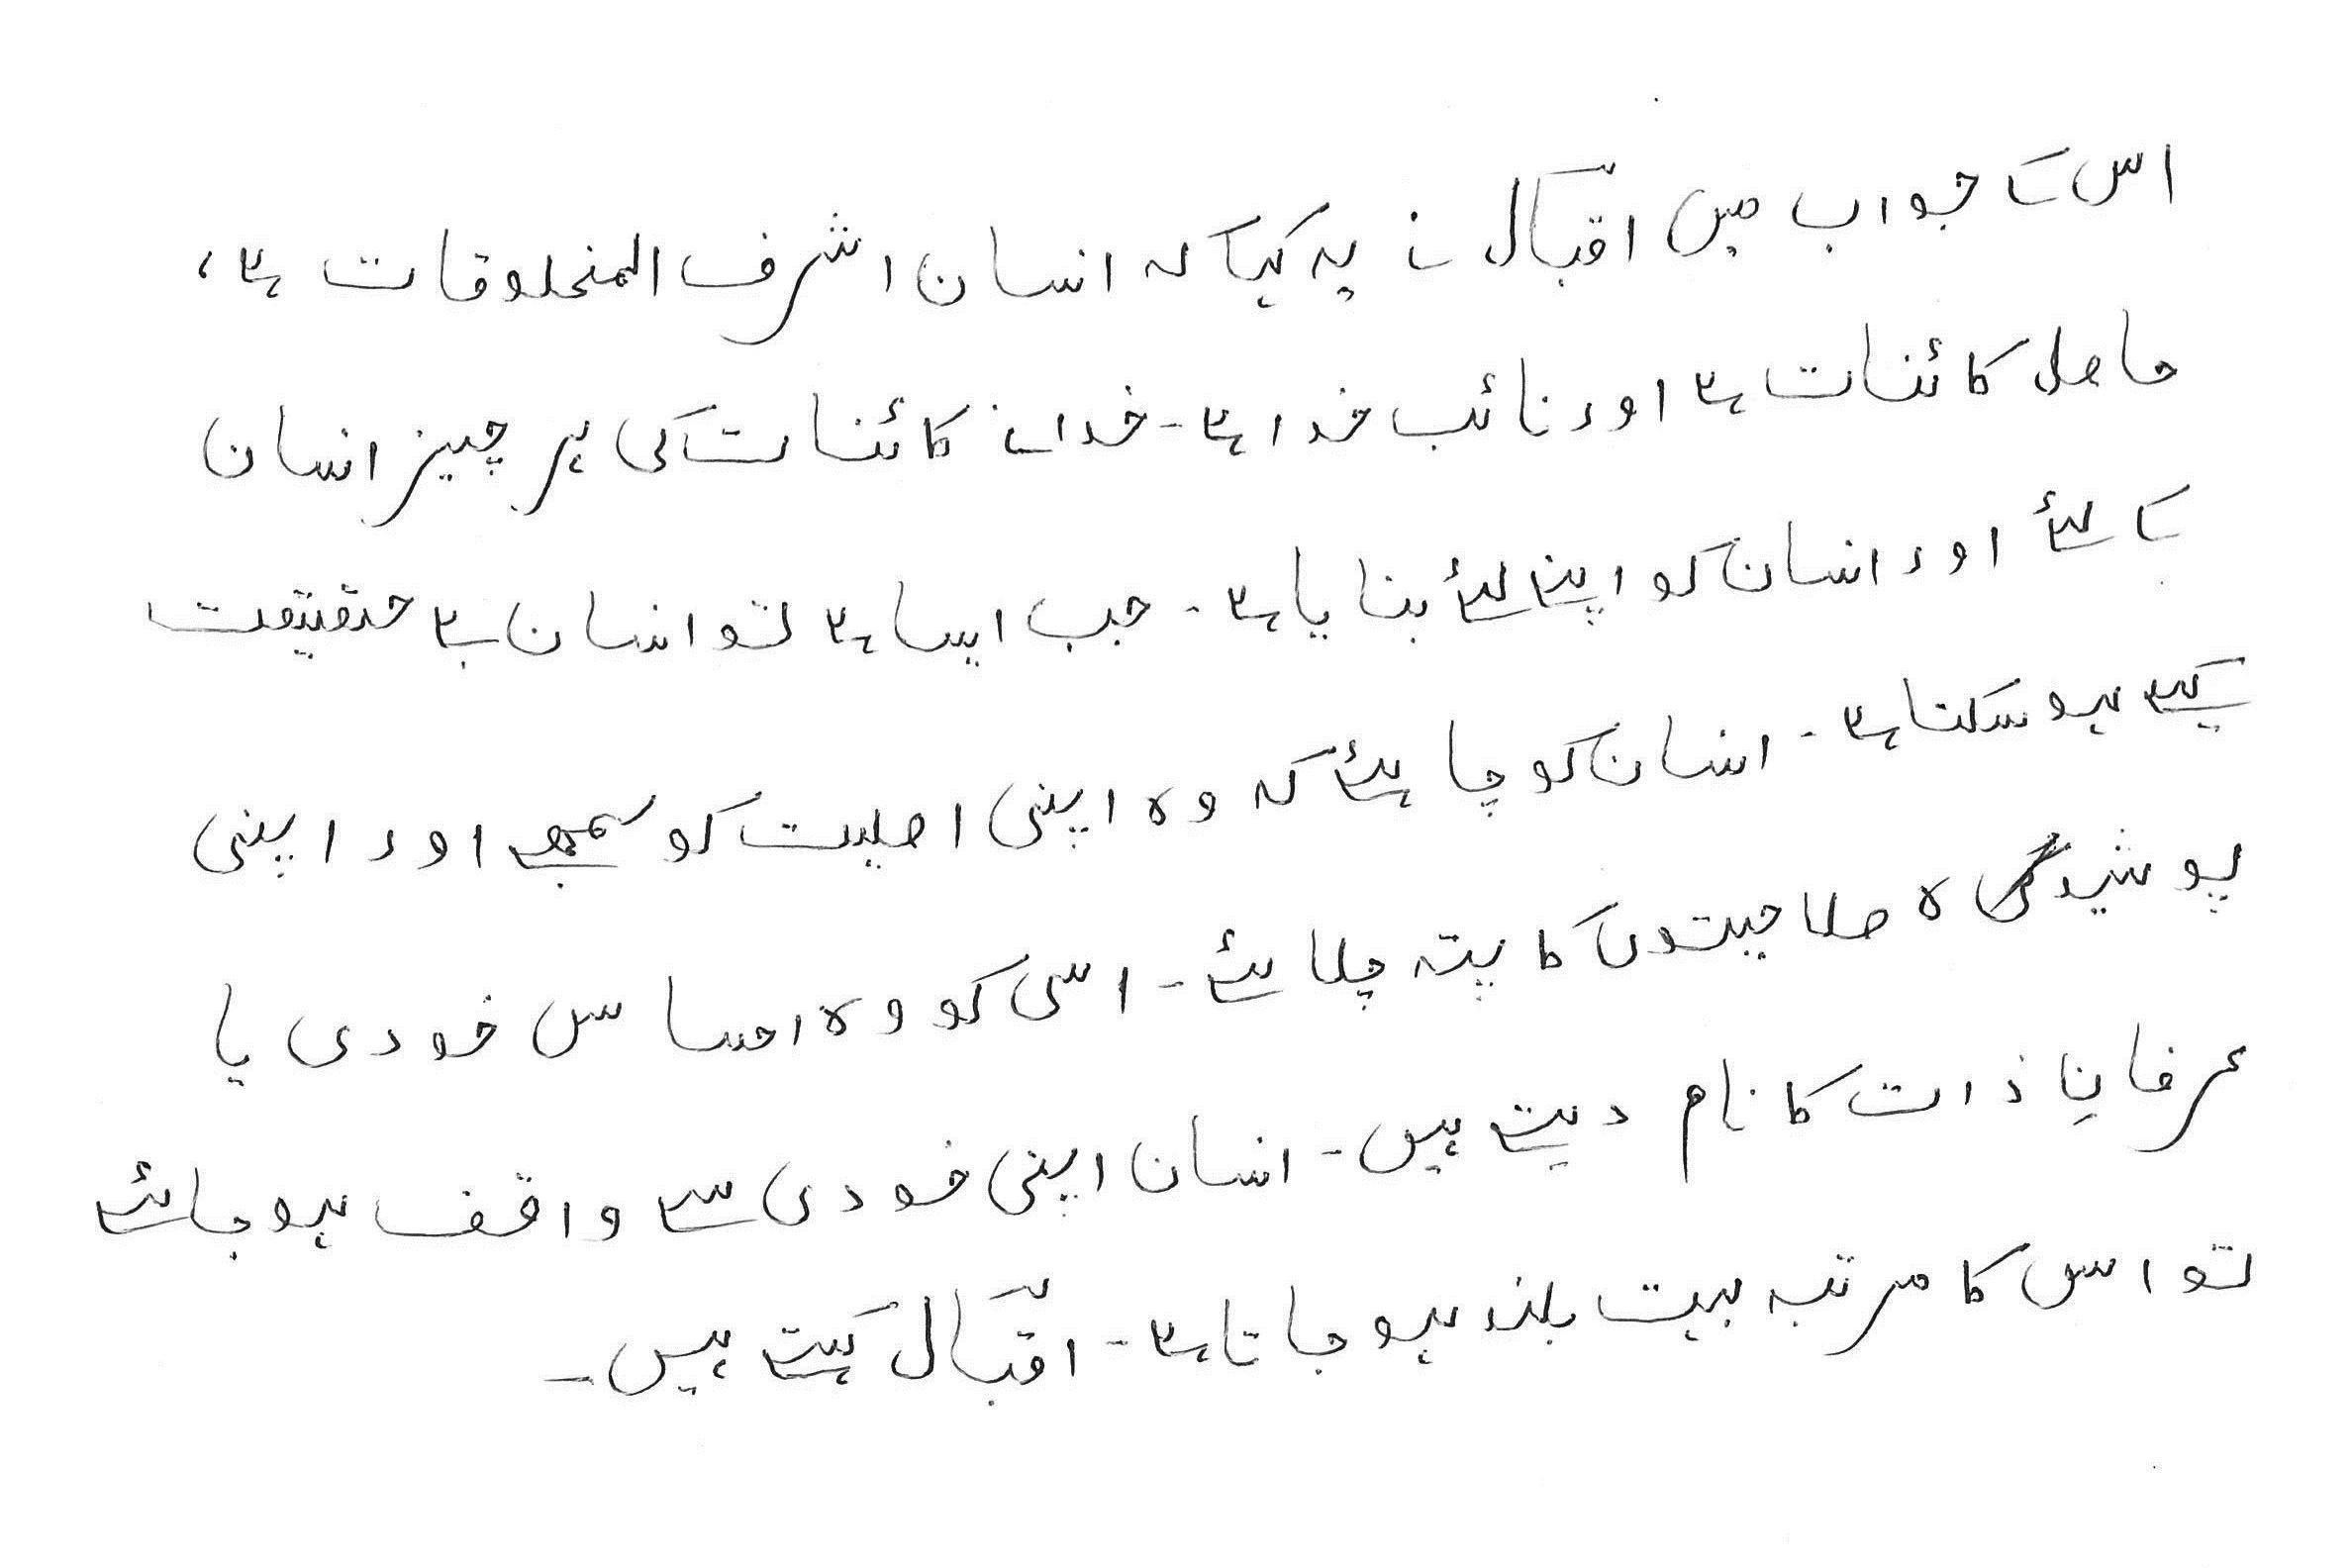 اس کے جواب میں اقبالؔ نے یہ کہا کہ انسان اشرف المخلوقات ہے،
حاصل کائنات ہے اور نائب خدا ہے۔ خدا نے کائنات کی ہر چیز انسان
کے لئے اور انسان کو اپنے لئے بنایا ہے۔ جب ایسا ہے تو انسان بے حقیقت
کیسے ہو سکتا ہے۔ انسان کو چاہئے کہ وہ اپنی اصلیت کو سمجھے اور اپنی
پوشیدہ صلاحیتوں کا پتہ چلائے۔ اسی کو وہ احساس خودی یا
عرفانِ ذات کا نام دیتے ہیں۔ انسان اپنی خودی سے واقف ہو جائے
تو اس کا مرتبہ بہت بلند ہو جاتا ہے۔ اقبالؔ کہتے ہیں۔